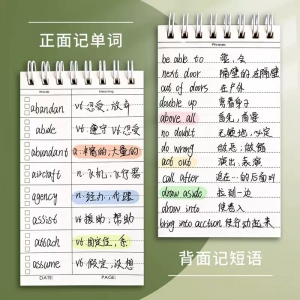 正面记单词
abandan vt 忍受, 放弃
abide vt 遵守 vi 忍受
abundant a. 丰富的, 大量的
aircraft n. 飞机, 飞行器
agency n. 代理
assist vt 援助, 帮助
attach vt 固定住, 系
assume vt 假定, 设想
DATE: PAGE:
Phrases
be able to 能, 会
next door 隔壁的 在隔壁
out of doors 在户外
double up 弯着身子
above all 首先, 首要
no doubt 无疑地, 必定
do wrong 做恶, 做错
act out 演出, 表演
call after 追在…的后面叫
draw aside 拉到一边
draw into 使卷入
bring into action 使行动起来
背面记短语